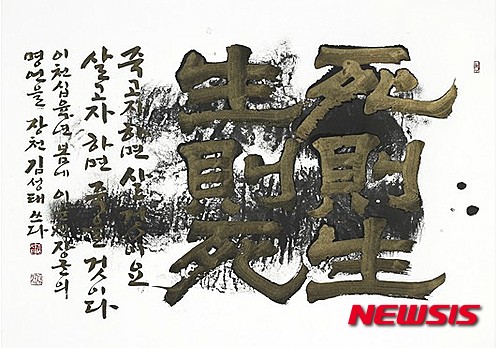 死則生
生則死
죽고자하면 살 것이요
살고자 하면 죽을 것이다
이천십육년 봄에 이순신 장군의
명언을 장천 김성태 쓰다
NEWSIS